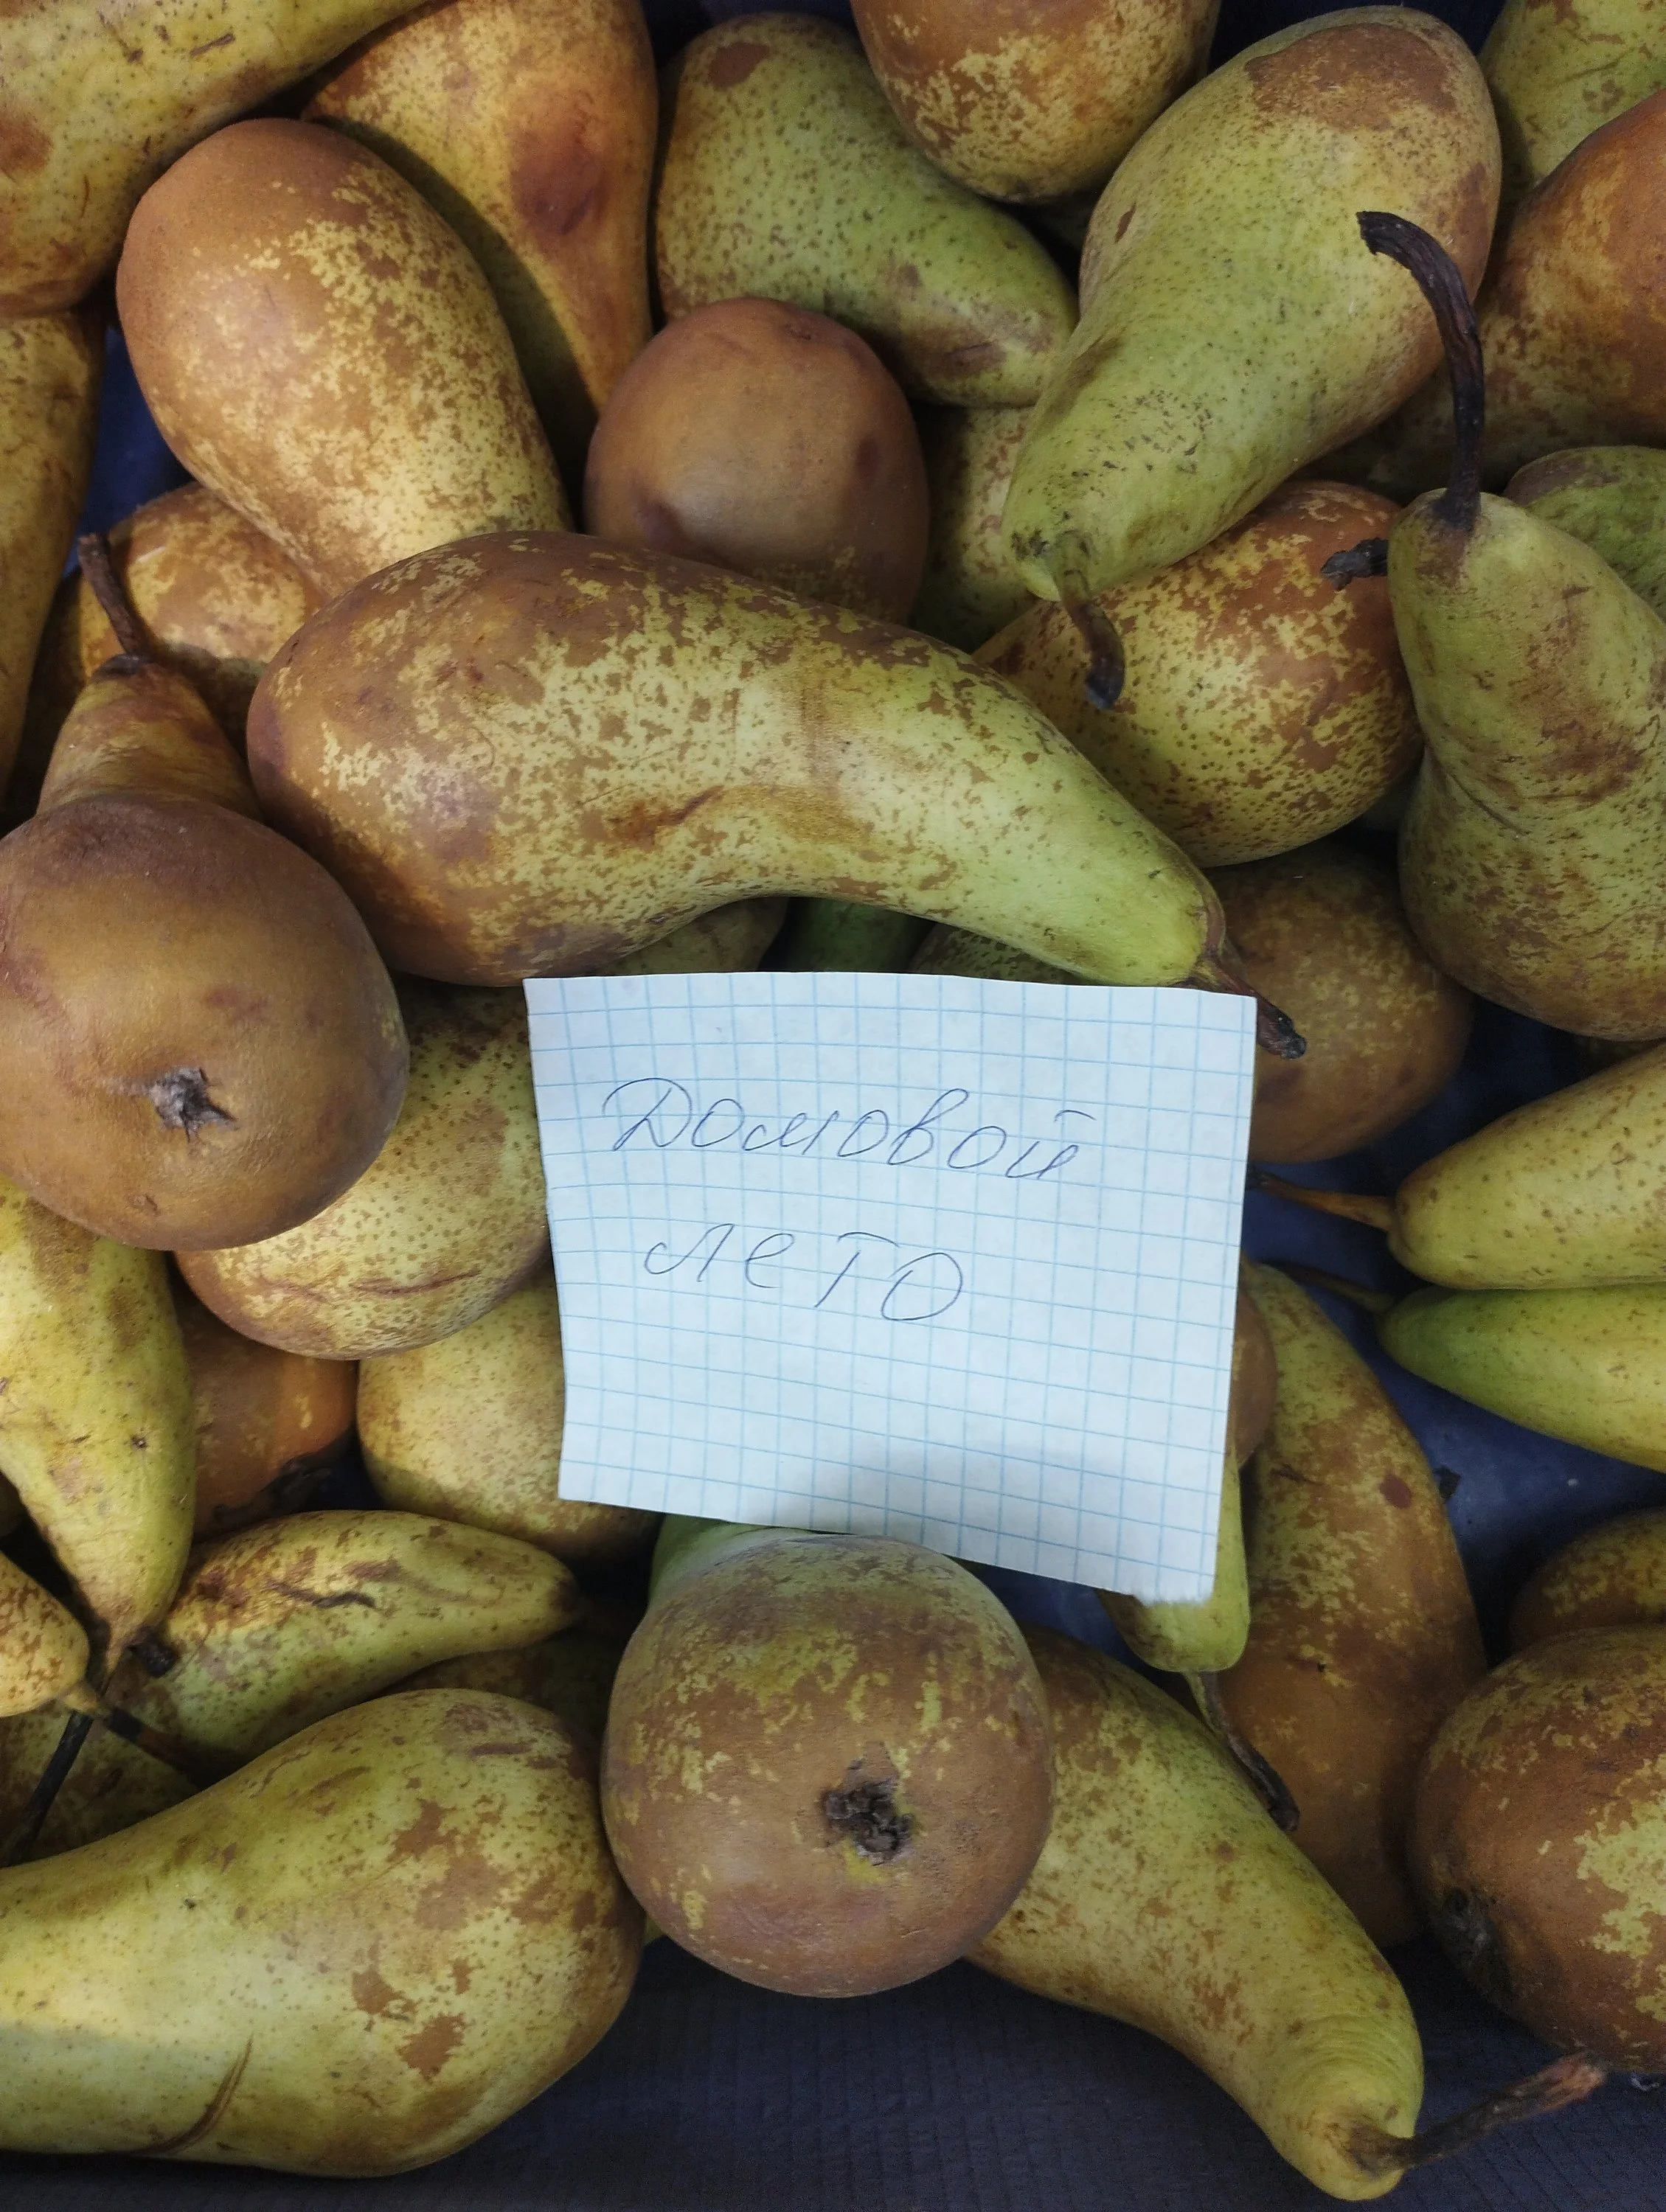 Домовой
лето